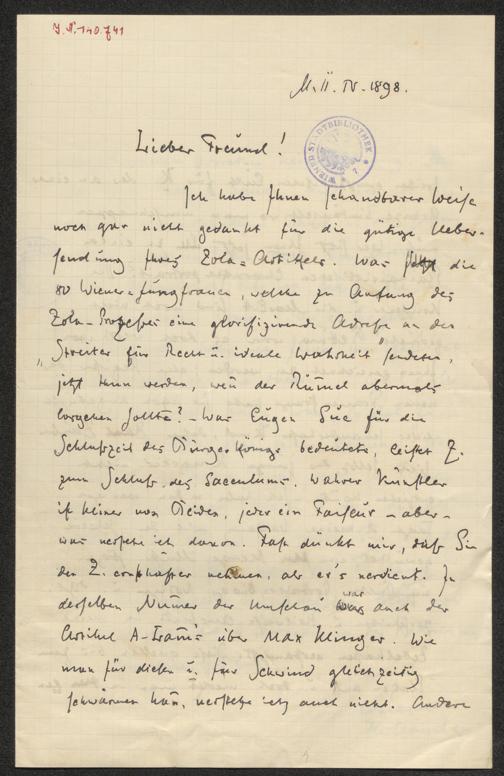 J.N. 140.741
M. II. IV. 1898.
WIENER STADTBIBLIOTHEK
Lieber Freund!
Ich habe Ihnen schandbarer Weise
noch gar nicht gedankt für die gütige Ueber-
sendung Ihres Zola-Artikels. Was die
80 Wiener-Jungfrauen, welche zu Anfang des
Zola-Prozesses eine glorifizirende Adresse an den
„Streiter für Recht u. ideale Wahrheit" sendeten,
jetzt tun werden, wenn der Rummel abermals
losgehen sollte? – Was Eugen Sue für die
Schlußzeit des Bürgerkönigs bedeutete, leistet Z.
zum Schluß des Saeculums. Wahrer Künstler
ist keiner von Beiden, jeder ein Faiseur – aber –
was verstehe ich davon. Fast dünkt mir, daß Sie
den Z. ernsthafter nehmen, als er's verdient. In
derselben Numer der Umschau war auch der
Artikel A-Tram's über Max Klinger. Wie
man für diesen u. für Schwind gleichzeitig
schwärmen kann, verstehe ich auch nicht. Andere